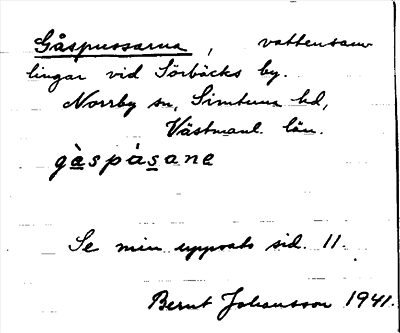 Gåspussarna, vattensam-
lingar vid Sörbäcks by.
Norrby sn, Simtuna hd,
Västmanl. län.
gàspàsane
Se min uppsats sid. 11.
Bernt Johansson 1941.